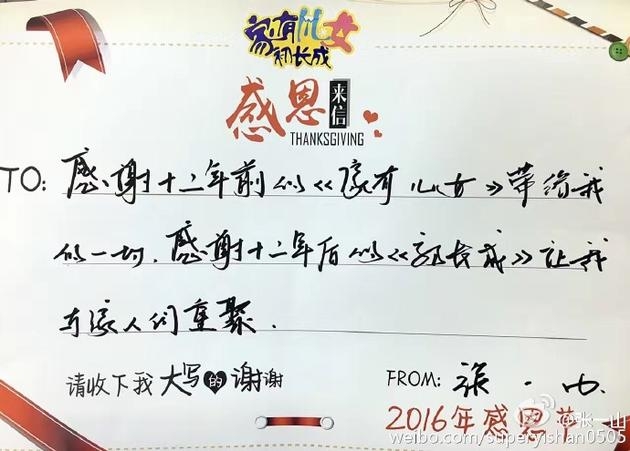 家有儿女
初长成
感恩来信
THANKSGIVING
TO: 感谢十二年前的《家有儿女》带给我
的一切，感谢十二年后的《初长成》让我
与家人们重聚.
请收下我大写的谢谢
FROM: 张一山
2016年感恩节
@张一山
weibo.com/superyishan0505